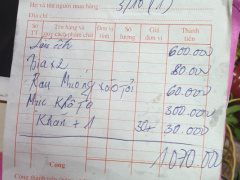 Họ và tên người mua hàng 3/10 (1)
Địa chỉ
Số TT Tên hàng và quy cách phẩm chất Đơn vị tính Số lượng Giá đơn vị Thành tiền
Lẩu ếch 600.000
Bia x2 80.000
Rau Muống xào tỏi 60.000
Mực Khô 300.000
Khăn + 1 30.000
Cộng 1070.000